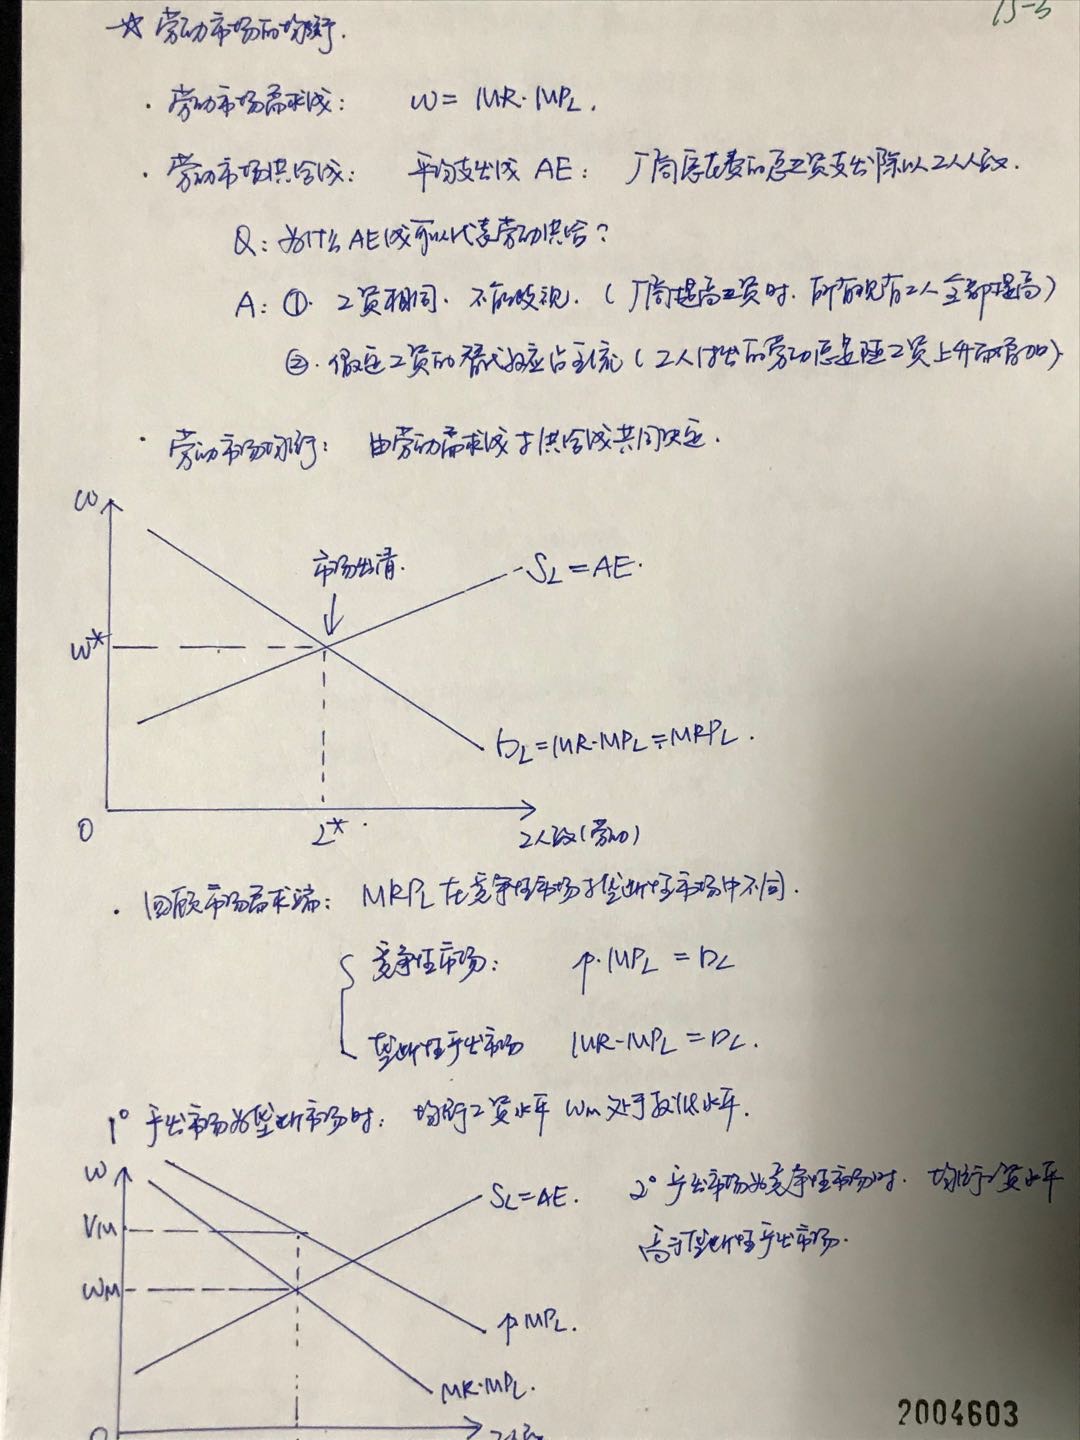 15-3
☆ 劳动市场的均衡.
· 劳动市场需求线: W = MR·MPL.
· 劳动市场供给线: 平均支出线 AE: 厂商愿花费的总工资支出除以工人人数.
Q: 为什么AE线可以代表劳动供给?
A: ①. 工资相同. 不存歧视. (厂商提高工资时. 所有现有工人全部提高)
②. 假定工资的替代效应占主流 (工人付出的劳动总是随工资上升而增加)
· 劳动市场均衡: 由劳动需求线与供给线共同决定.
W
市场出清.
SL = AE.
W*
DL = MR·MPL = MRPL.
O L* 工人数(劳动)
· 回顾市场需求端: MRPL在竞争性市场与垄断性市场中不同.
竞争性市场: P·MPL = DL
垄断性产出市场 MR·MPL = DL.
1° 产出市场为垄断市场时: 均衡工资水平 WM处于较低水平.
W
SL = AE.
2° 产出市场为竞争性市场时. 均衡工资水平
高于垄断性产出市场.
VM
WM
P·MPL.
MR·MPL.
O 工人数
2004603